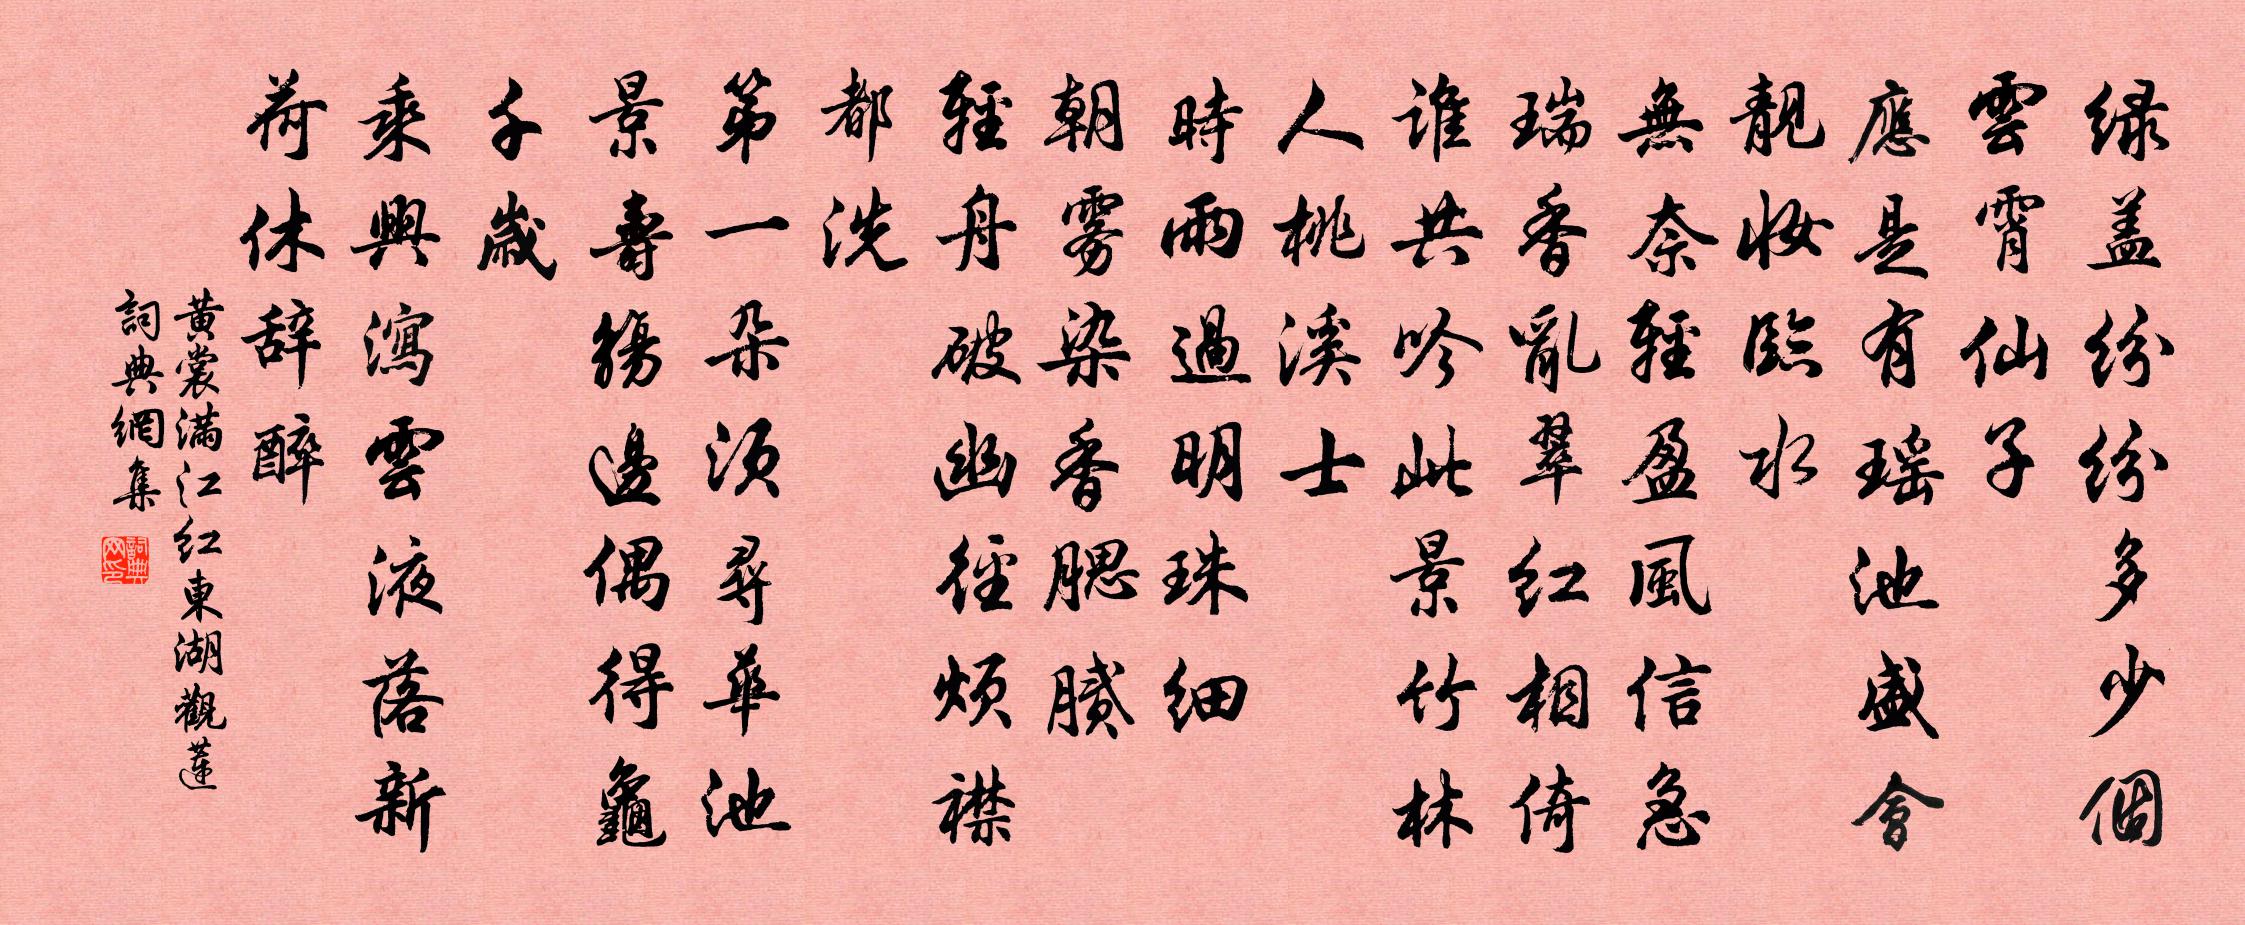 緑盖紛紛多少個
雲霄仙子
應是有瑶池盛會
靚妝臨水
無奈輕盈風信急
瑞香亂翠紅相倚
誰共吟此景竹林
人桃溪士
時雨過明珠細
朝雾染香腮膩
輕舟破幽徑煩襟
都洗
第一朵須尋華池
景壽觴邊偶得龜
千歲
乘興瀉雲液落新
荷休辞醉
黃裳满江红東湖觀蓮
詞典網集
詞典网印